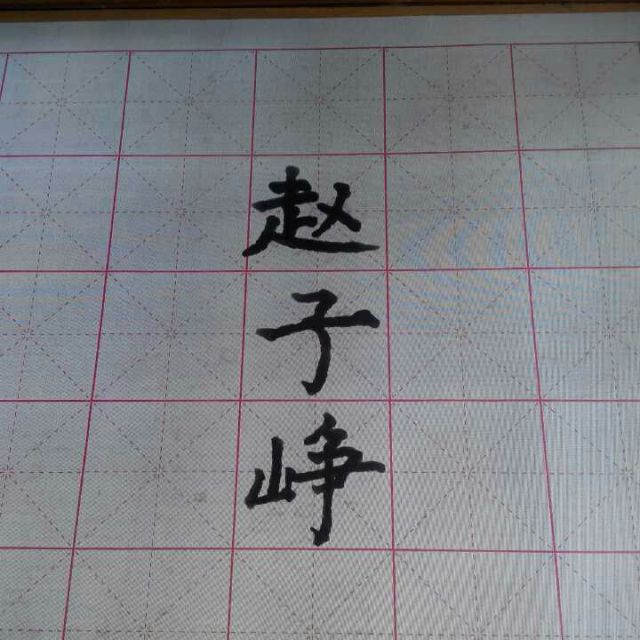 赵子峥